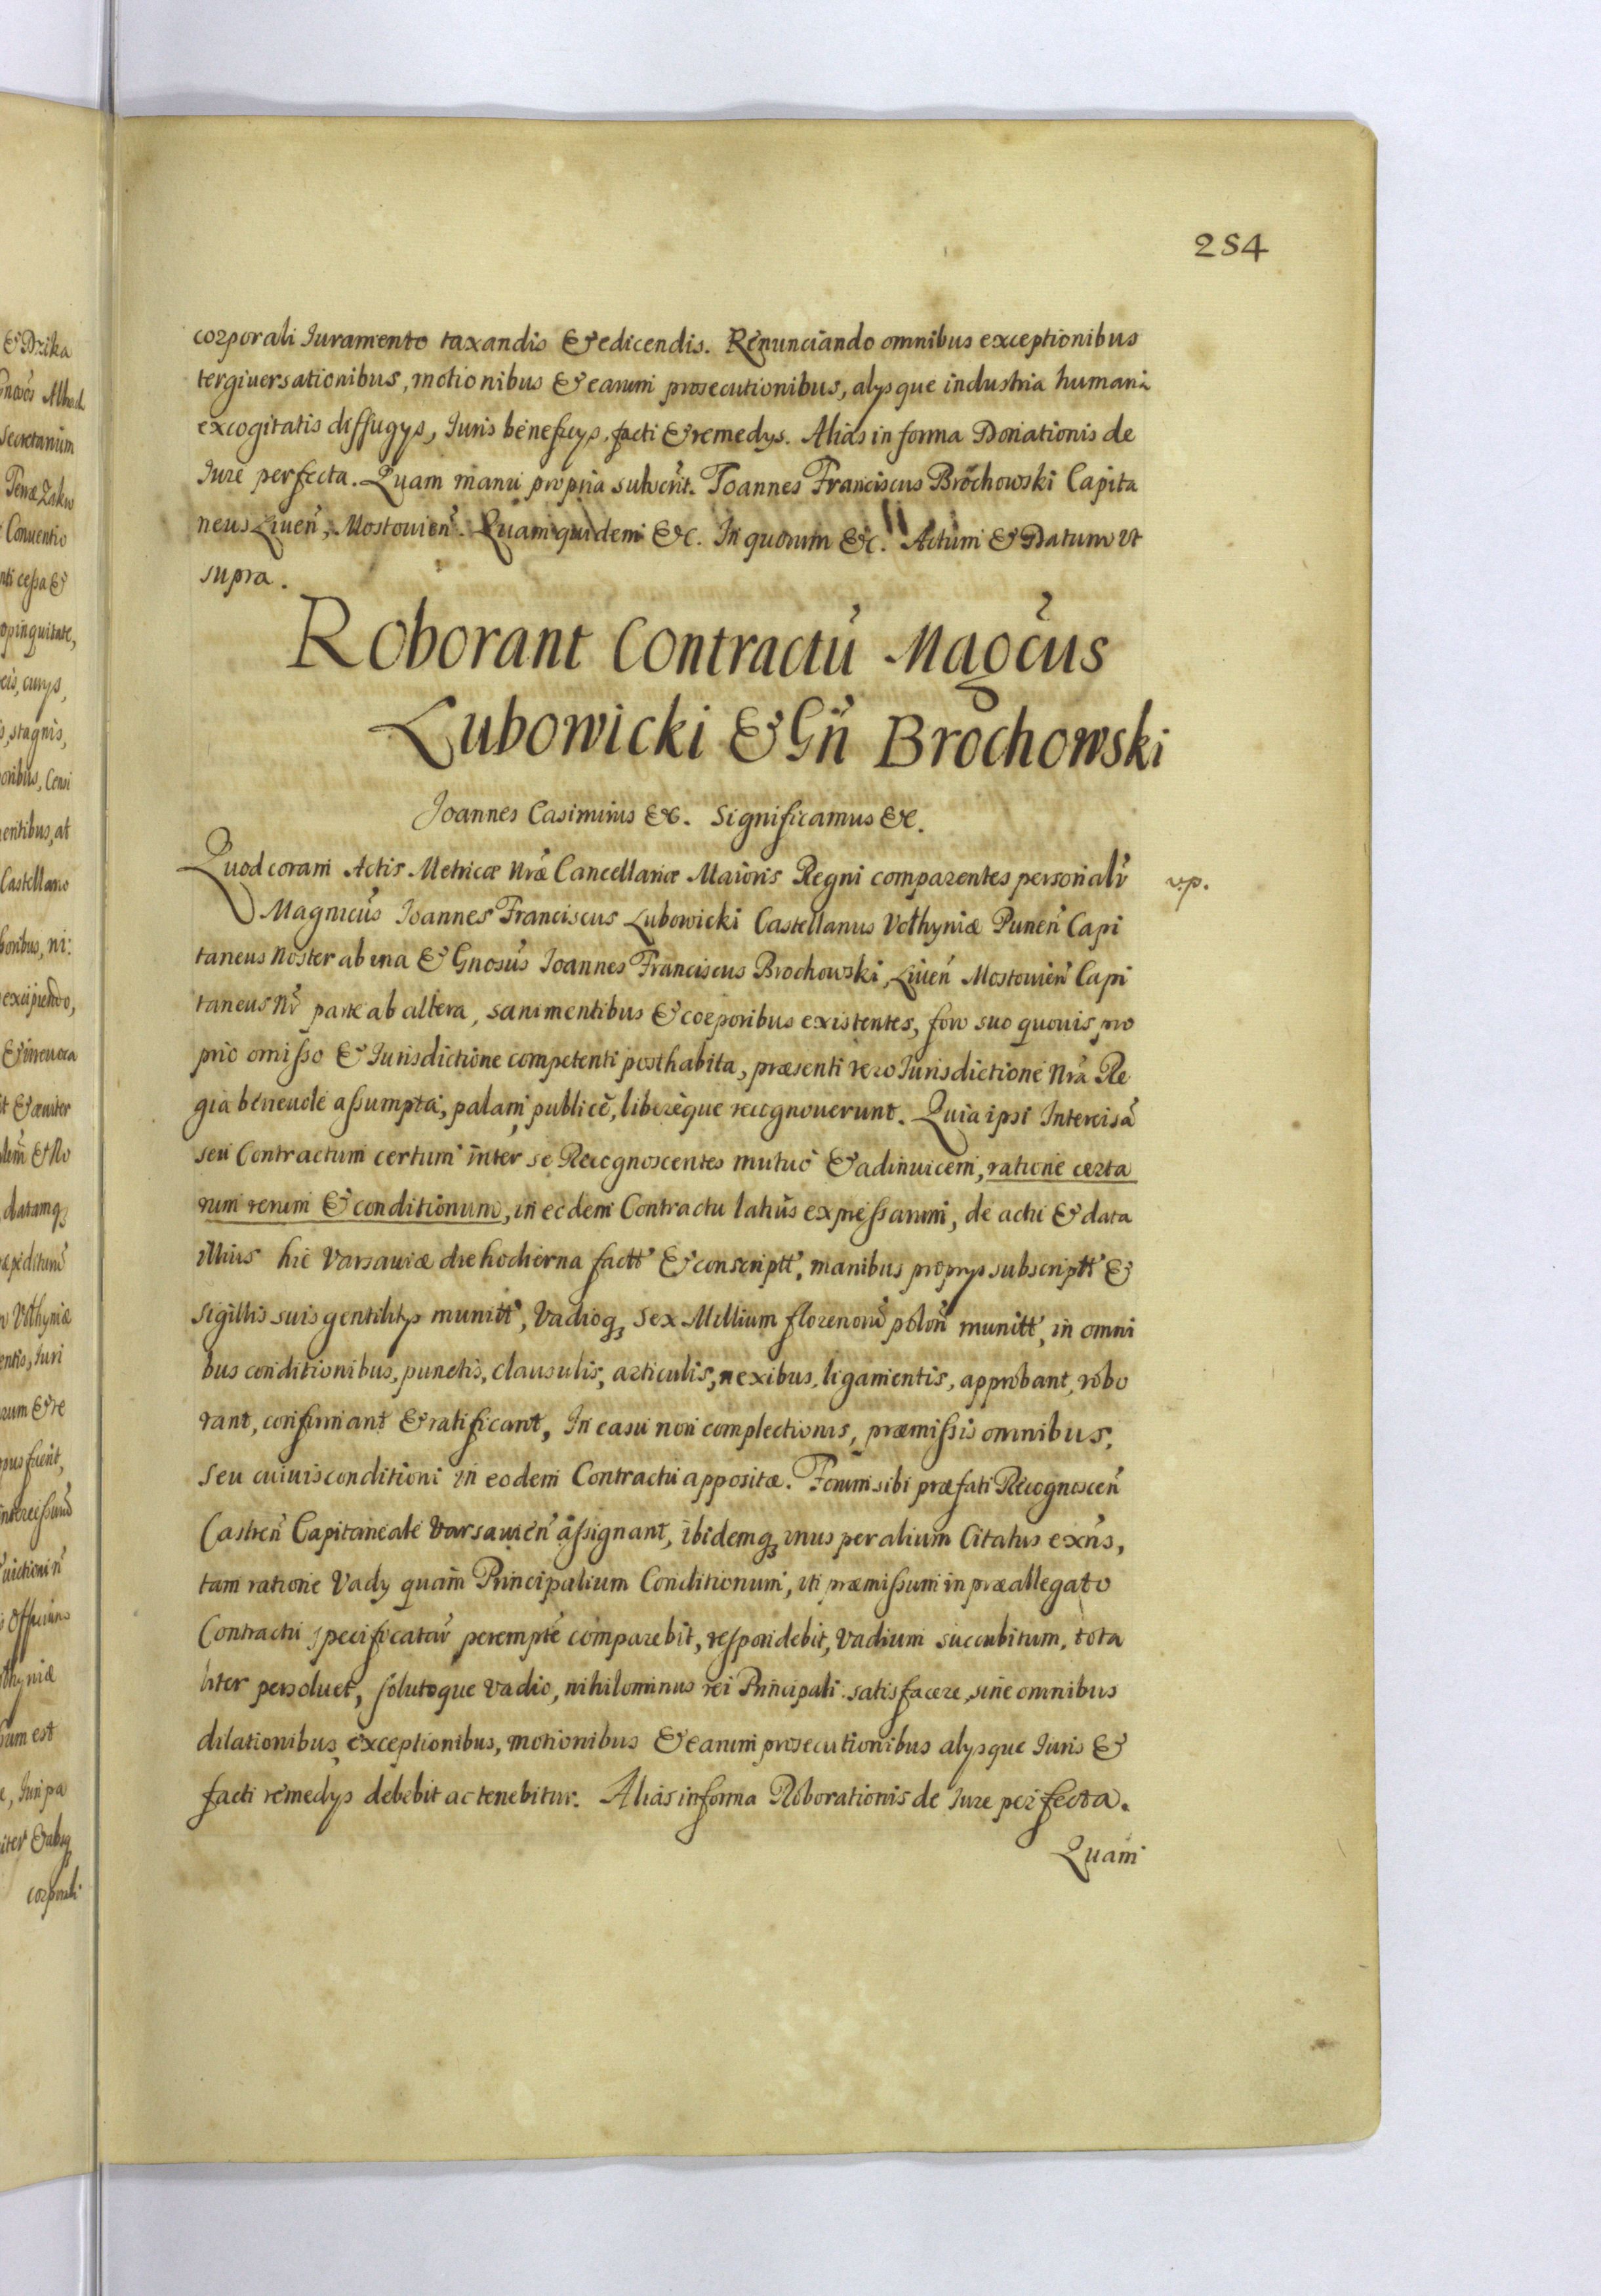 254
corporali Iuramento taxandis & edicendis. Renunciando omnibus exceptionibus
tergiuersationibus, motionibus & earum prosecutionibus, alysque industria humana
excogitatis diffugys, Iuris beneficys, facti & remedys. Alias in forma Donationis de
Iure perfecta. Quam manu propria subscrit. Joannes Franciscus Brochowski Capita
neus Liuen̄, Mostouien̄. Quam quidem &c. In quorum &c. Actum & Datum vt
supra.
Roborant Contractū Magc̄us
Lubowicki & Gn̄ Brochowski
Joannes Casimirus &c. Significamus &c.
Quod coram Actis Metricæ nr̄æ Cancellariæ Maioris Regni comparentes personalr̄
vp.
Magnicus Ioannes Franciscus Lubowicki Castellanus Vołhyniæ Punen̄ Capi
taneus Noster ab vna & Gnosus Joannes Franciscus Brochowski, Liuen̄ Mostouien̄ Capi
taneus Nr̄ parte ab altera, sani mentibus & corporibus existentes, foro suo quouis pro
prio omisso & Iurisdictione competenti posthabita, præsenti vero Iurisdictione Nr̄a Re
gia beneuole assumpta, palam publicè, liberèque recognouerunt. Quia ipsi Intercisā
seu Contractum certum inter se Recognoscentes mutuò & adinuicem, ratione certa
rum rerum & conditionum, in eodem Contractu latius expressarum, de actu & data
illius hic Varsauiæ die hodierna factt̄ & conscriptt̄, manibus proprys subscriptt̄ &
sigillis suis gentilitys munitt̄, Vadioq; sex Millium florenorū polon̄ munitt̄, in omni
bus conditionibus, punctis, clausulis, articulis, nexibus, ligamentis, approbant, robo
rant, confirmant & ratificant, In casu non complectionis, præmissis omnibus,
seu cuiuis conditioni in eodem Contractu appositæ. Forum sibi præfati Recognoscen̄
Castren̄ Capitaneale Varsauien̄ assignant, ibidemq; vnus per alium Citatus exn̄s,
tam ratione Vady quam Principalium Conditionum, vti præmissum in præallegato
Contractu specificatar̄ perempte comparebit, respondebit, Vadium succubitum, tota
liter persoluet, solutoque Vadio, nihilominus rei Principali satisfacere, sine omnibus
dilationibus exceptionibus, motionibus & earum prosecutionibus alysque Iuris &
facti remedys debebit ac tenebitur. Alias in forma Roborationis de Iure perfecta.
Quam